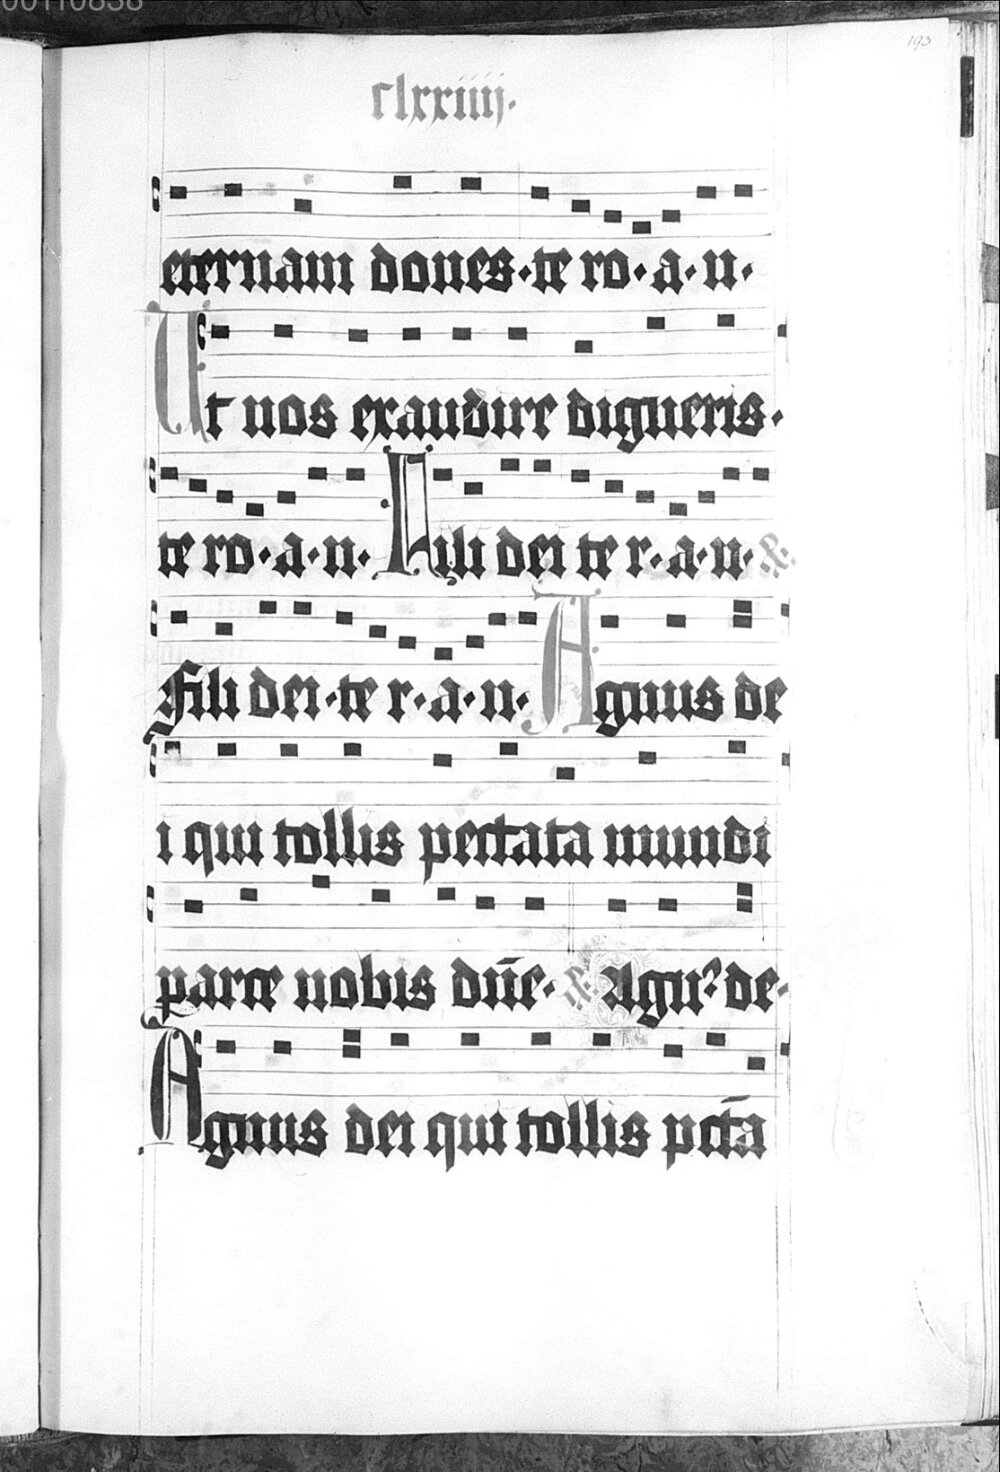 00110838
193
clxxiiij.
eternam dones·te ro·a·n·
Ut nos exaudire digneris·
te ro·a·n· Fili dei te r·a·n· ꝶ.
Fili dei·te r·a·n· Agnus de
i qui tollis peccata mundi
parce nobis dn̄e· ꝶ. Agn⁹ de·
Agnus dei qui tollis pctā